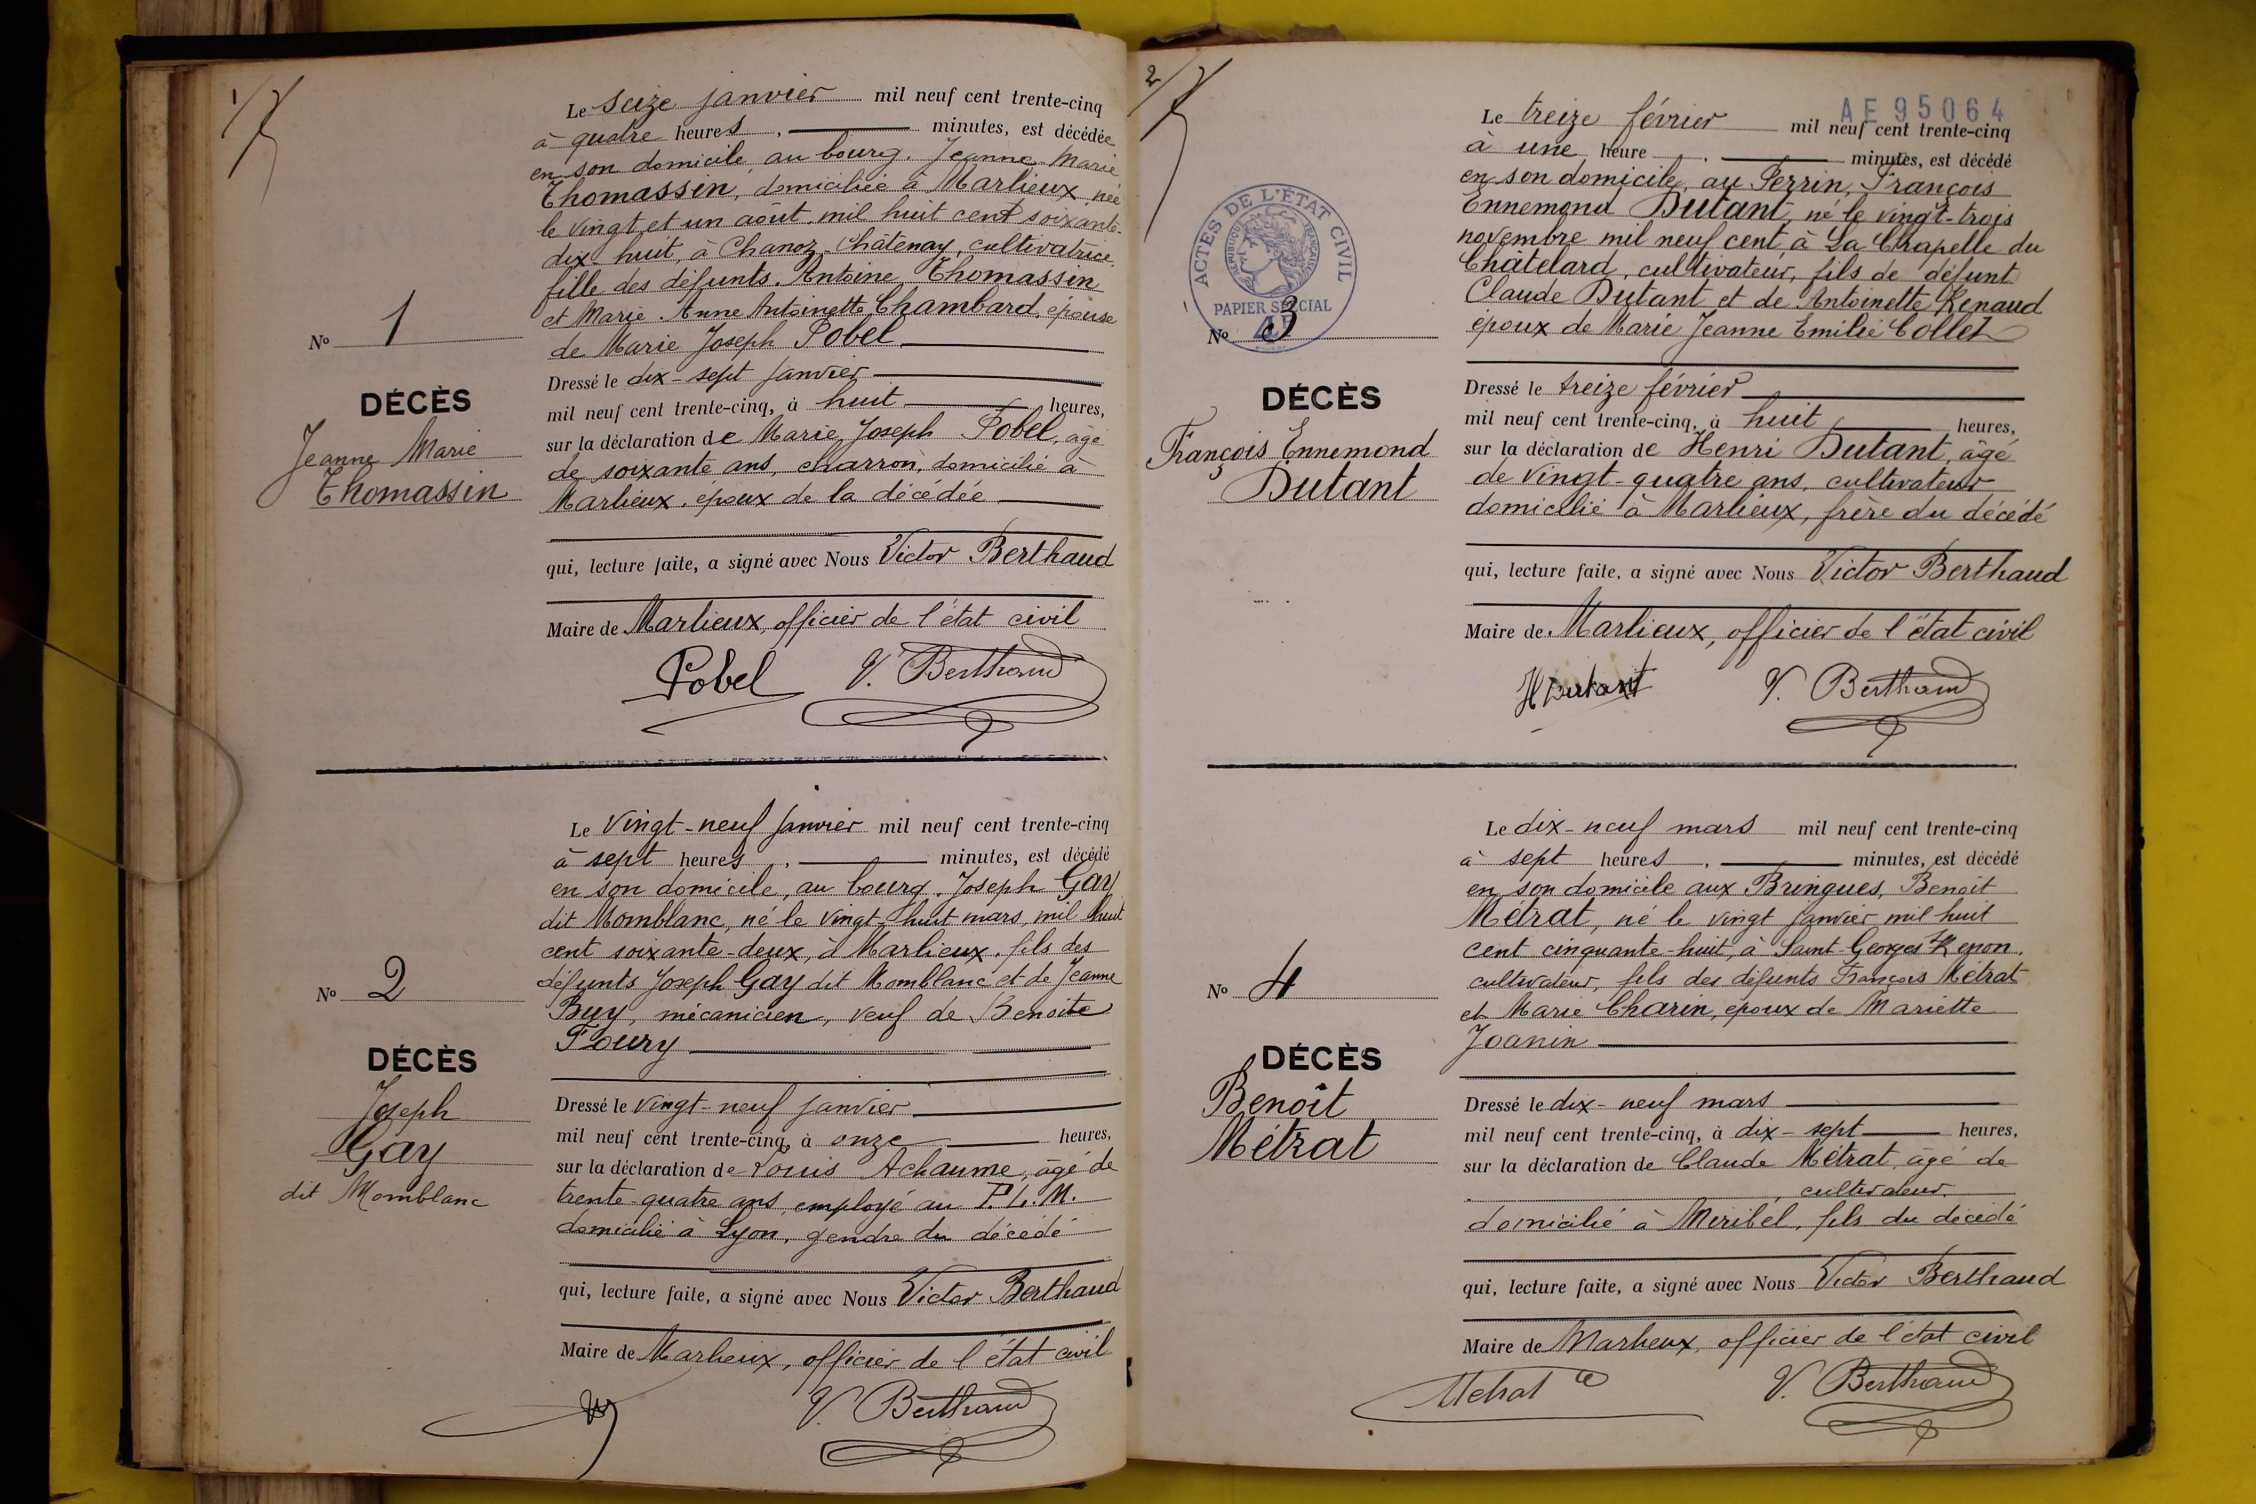 1/
Le seize janvier mil neuf cent trente-cinq
à quatre heures, minutes, est décédée
en son domicile, au bourg, Jeanne Marie
Thomassin, domiciliée à Marlieux, née
le vingt et un août, mil huit cent soixante-
dix-huit, à Chanoz-Châtenay, cultivatrice,
fille des défunts, Antoine Thomassin
et Marie Anne Antoinette Chambard, épouse
de Marie Joseph Pobel
No 1
DÉCÈS
Jeanne Marie
Thomassin
Dressé le dix-sept janvier
mil neuf cent trente-cinq, à huit heures,
sur la déclaration de Marie Joseph Pobel, âgé
de soixante ans, charron, domicilié à
Marlieux, époux de la décédée
qui, lecture faite, a signé avec Nous Victor Berthaud
Maire de Marlieux, officier de l'état civil
Pobel V. Berthaud
Le vingt-neuf janvier mil neuf cent trente-cinq
à sept heures, minutes, est décédé
en son domicile, au bourg, Joseph Gay
dit Momblanc, né le vingt-huit mars, mil huit
cent soixante-deux, à Marlieux, fils des
défunts Joseph Gay dit Momblanc et de Jeanne
Buy, mécanicien, veuf de Benoite
Foury
No 2
DÉCÈS
Joseph
Gay
dit Momblanc
Dressé le vingt-neuf janvier
mil neuf cent trente-cinq, à onze heures,
sur la déclaration de Louis Achaume, âgé de
trente-quatre ans, employé au P.L.M.
domicilié à Lyon, gendre du décédé
qui, lecture faite, a signé avec Nous Victor Berthaud
Maire de Marlieux, officier de l'état civil
V. Berthaud
2/
AE 95064
Le treize février mil neuf cent trente-cinq
à une heure, minutes, est décédé
en son domicile, au Perrin, François
Ennemond Dutant, né le vingt-trois
novembre mil neuf cent, à La Chapelle du
Châtelard, cultivateur, fils de défunt
Claude Dutant et de Antoinette Renaud
époux de Marie Jeanne Emilie Collet
ACTES DE L'ÉTAT CIVIL
RÉPUBLIQUE FRANÇAISE
PAPIER SPÉCIAL
No 3
DÉCÈS
François Ennemond
Dutant
Dressé le treize février
mil neuf cent trente-cinq, à huit heures,
sur la déclaration de Henri Dutant, âgé
de vingt-quatre ans, cultivateur
domicilié à Marlieux, frère du décédé
qui, lecture faite, a signé avec Nous Victor Berthaud
Maire de Marlieux, officier de l'état civil
H Dutant V. Berthaud
Le dix-neuf mars mil neuf cent trente-cinq
à sept heures, minutes, est décédé
en son domicile aux Bringues, Benoît
Métrat, né le vingt janvier mil huit
cent cinquante-huit, à Saint-Georges Renon,
cultivateur, fils des défunts François Métrat
et Marie Charin, époux de Mariette
Joanin
No 4
DÉCÈS
Benoît
Métrat
Dressé le dix-neuf mars
mil neuf cent trente-cinq, à dix-sept heures,
sur la déclaration de Claude Métrat, âgé de
, cultivateur,
domicilié à Miribel, fils du décédé
qui, lecture faite, a signé avec Nous Victor Berthaud
Maire de Marlieux, officier de l'état civil
Métrat Ce V. Berthaud